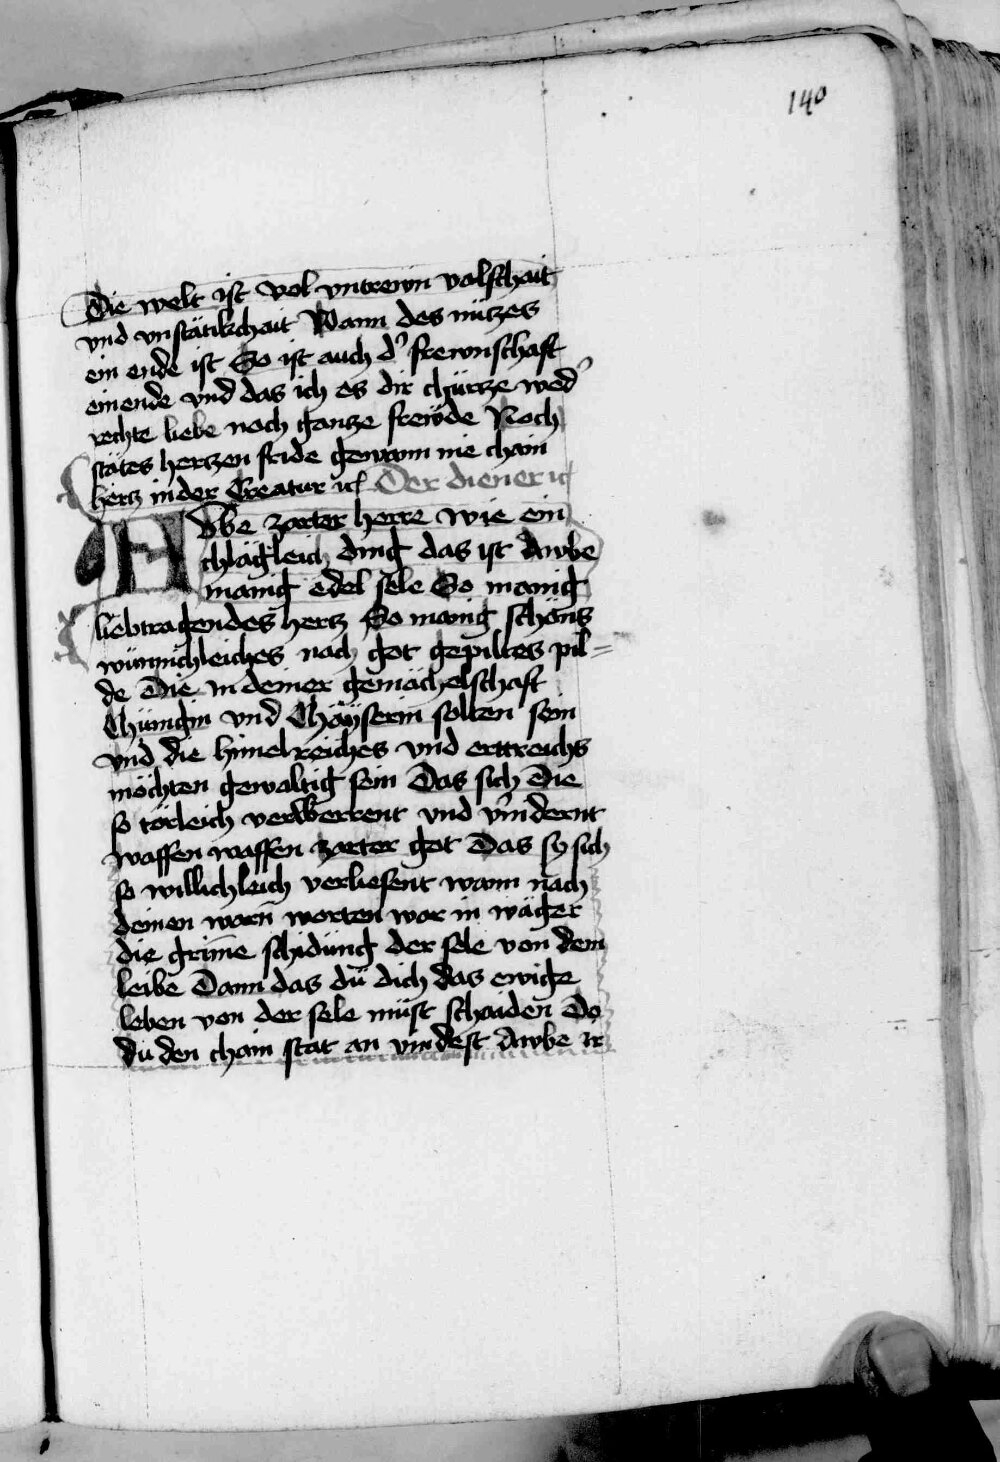 140
Die welt ist vol vntrewn valschait
vnd vnstätikchait Wann des nützes
ein ende ist So ist auch d' frewnschaft
ein ende vnd das ich es dir chürtze wed'
rechte liebe noch gantze frewde Noch
stätes hertzen fride gewann nie chain
hertz in der Creatur ꝛc Der diener ꝛc
Ewbe zarter herre wie ein
chlägleich ding das ist Awbe
manig edel sele So manig
liebtragendes hertz So manig schöns
wünnichleiches nach got gepiltes pil=
de Die in deiner gemächelschaft
Chünigin vnd Chäyserin solten sein
vnd die himelreiches vnd erttreichs
möchten gewaltig sein Das sich Die
so törleich verwerrent vnd v'nidernt
waffen waffen zarter got Das sy sich
so willichleich verliesent wann nach
deinen warn worten wår in wäger
die grīme schidüng der sele von dem
leibe Dann das dü dich das ewige
leben von der sele müst schaiden Do
du den chain stat an vindest Awbe ir